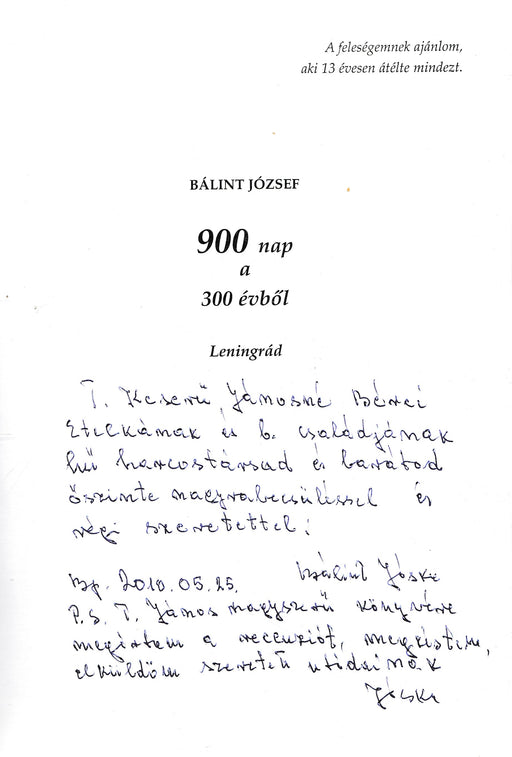 A feleségemnek ajánlom,
aki 13 évesen átélte mindezt.
BÁLINT JÓZSEF
900 nap
a
300 évből
Leningrád
T. Keserű Jánosné Bérei
Etelkámak és b. családjának
hű harcostársad és barátod
őszinte nagyrabecsüléssel és
régi szeretettel:
Bp. 2010.05.25. Bálint Jóska
P.S. T. János nagyszerű könyvére
megírtam a recenziót,
elküldöm
Jóska